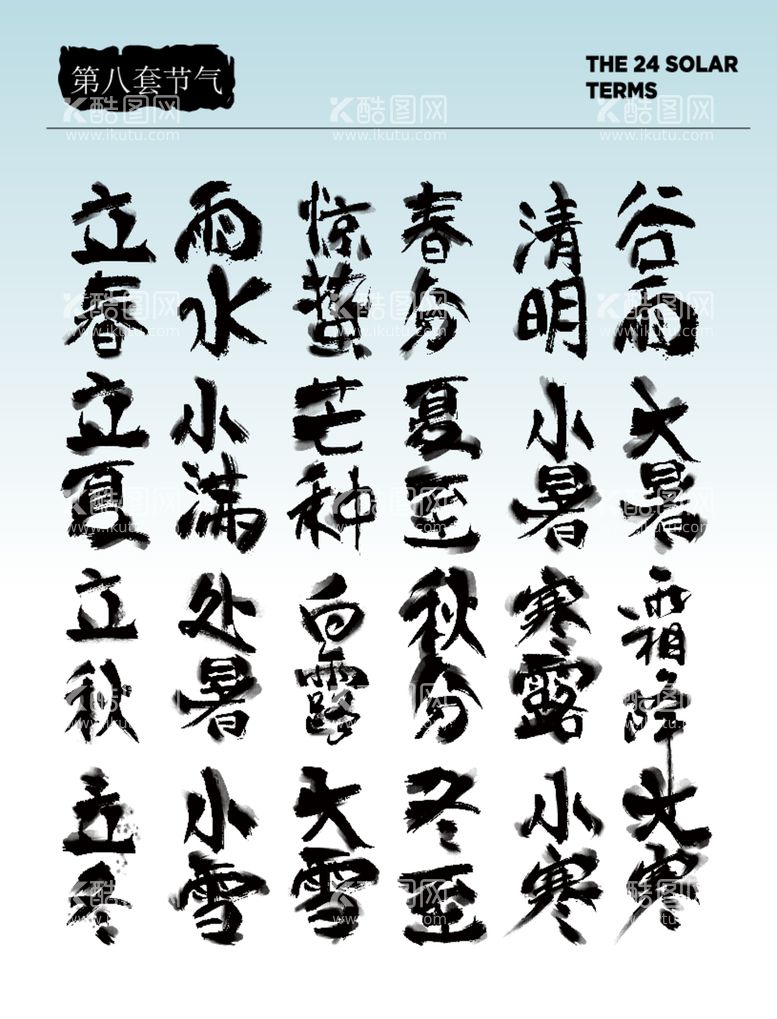 第八套节气
THE 24 SOLAR
TERMS
立春 雨水 惊蛰 春分 清明 谷雨
立夏 小满 芒种 夏至 小暑 大暑
立秋 处暑 白露 秋分 寒露 霜降
立冬 小雪 大雪 冬至 小寒 大寒
酷图网
www.ikutu.com